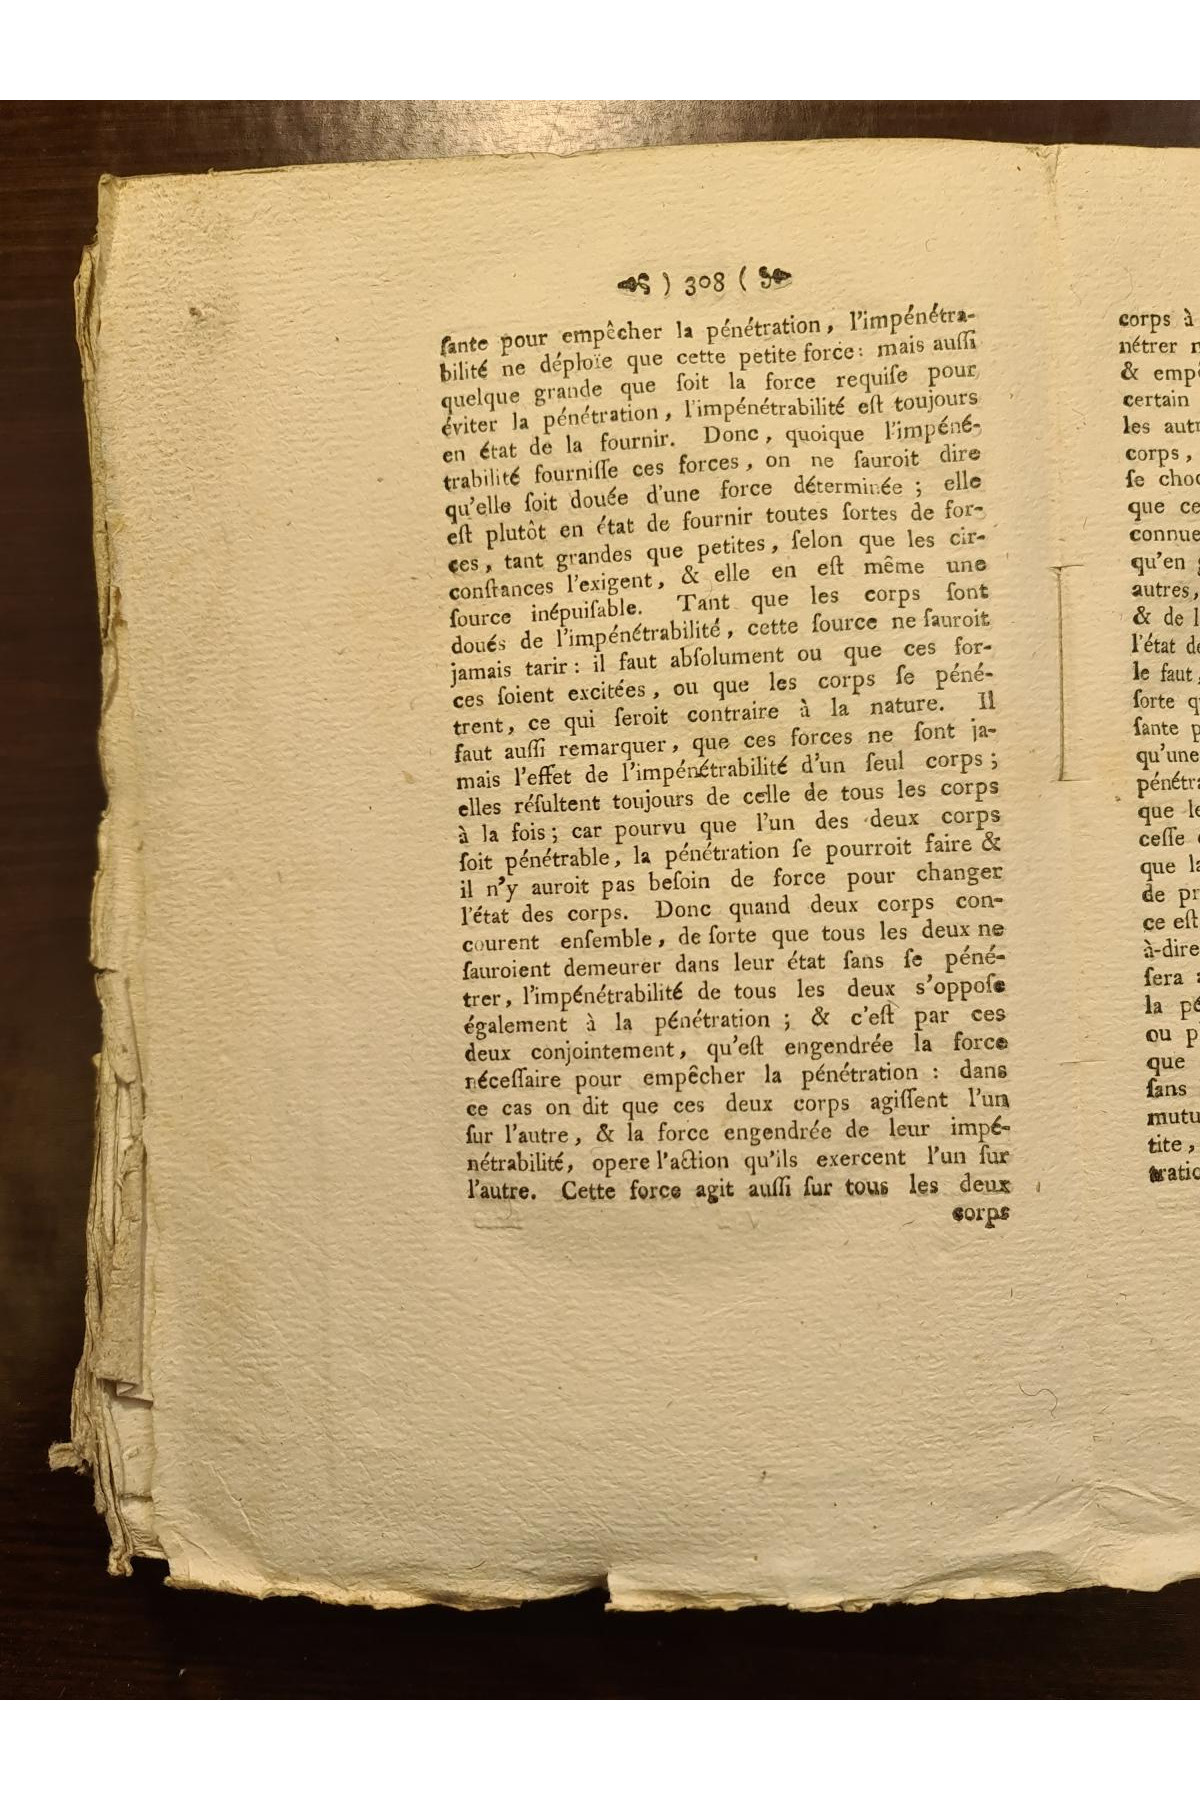 ) 308 (
ſante pour empêcher la pénétration, l'impénétra-
bilité ne déploïe que cette petite force: mais auſſi
quelque grande que ſoit la force requiſe pour
éviter la pénétration, l'impénétrabilité eſt toujours
en état de la fournir. Donc, quoique l'impéné-
trabilité fourniſſe ces forces, on ne ſauroit dire
qu'elle ſoit douée d'une force déterminée; elle
eſt plutôt en état de fournir toutes ſortes de for-
ces, tant grandes que petites, ſelon que les cir-
conſtances l'exigent, & elle en eſt même une
ſource inépuiſable. Tant que les corps ſont
doués de l'impénétrabilité, cette ſource ne ſauroit
jamais tarir: il faut abſolument ou que ces for-
ces ſoient excitées, ou que les corps ſe péné-
trent, ce qui ſeroit contraire à la nature. Il
faut auſſi remarquer, que ces forces ne ſont ja-
mais l'effet de l'impénétrabilité d'un ſeul corps;
elles réſultent toujours de celle de tous les corps
à la fois; car pourvu que l'un des deux corps
ſoit pénétrable, la pénétration ſe pourroit faire &
il n'y auroit pas beſoin de force pour changer
l'état des corps. Donc quand deux corps con-
courent enſemble, de ſorte que tous les deux ne
ſauroient demeurer dans leur état ſans ſe péné-
trer, l'impénétrabilité de tous les deux s'oppoſe
également à la pénétration; & c'eſt par ces
deux conjointement, qu'eſt engendrée la force
néceſſaire pour empêcher la pénétration: dans
ce cas on dit que ces deux corps agiſſent l'un
ſur l'autre, & la force engendrée de leur impé-
nétrabilité, opere l'action qu'ils exercent l'un ſur
l'autre. Cette force agit auſſi ſur tous les deux
corps
corps à
nétrer
& emp
certain
les aut
corps,
ſe choc
que ce
connue
qu'en
autres,
& de l
l'état d
le faut,
ſorte q
ſante p
qu'une
pénétr
que le
ceſſe
que la
de pr
ce eſt
à-dire
ſera
la pé
ou p
que
ſans
mutu
tite,
tratio